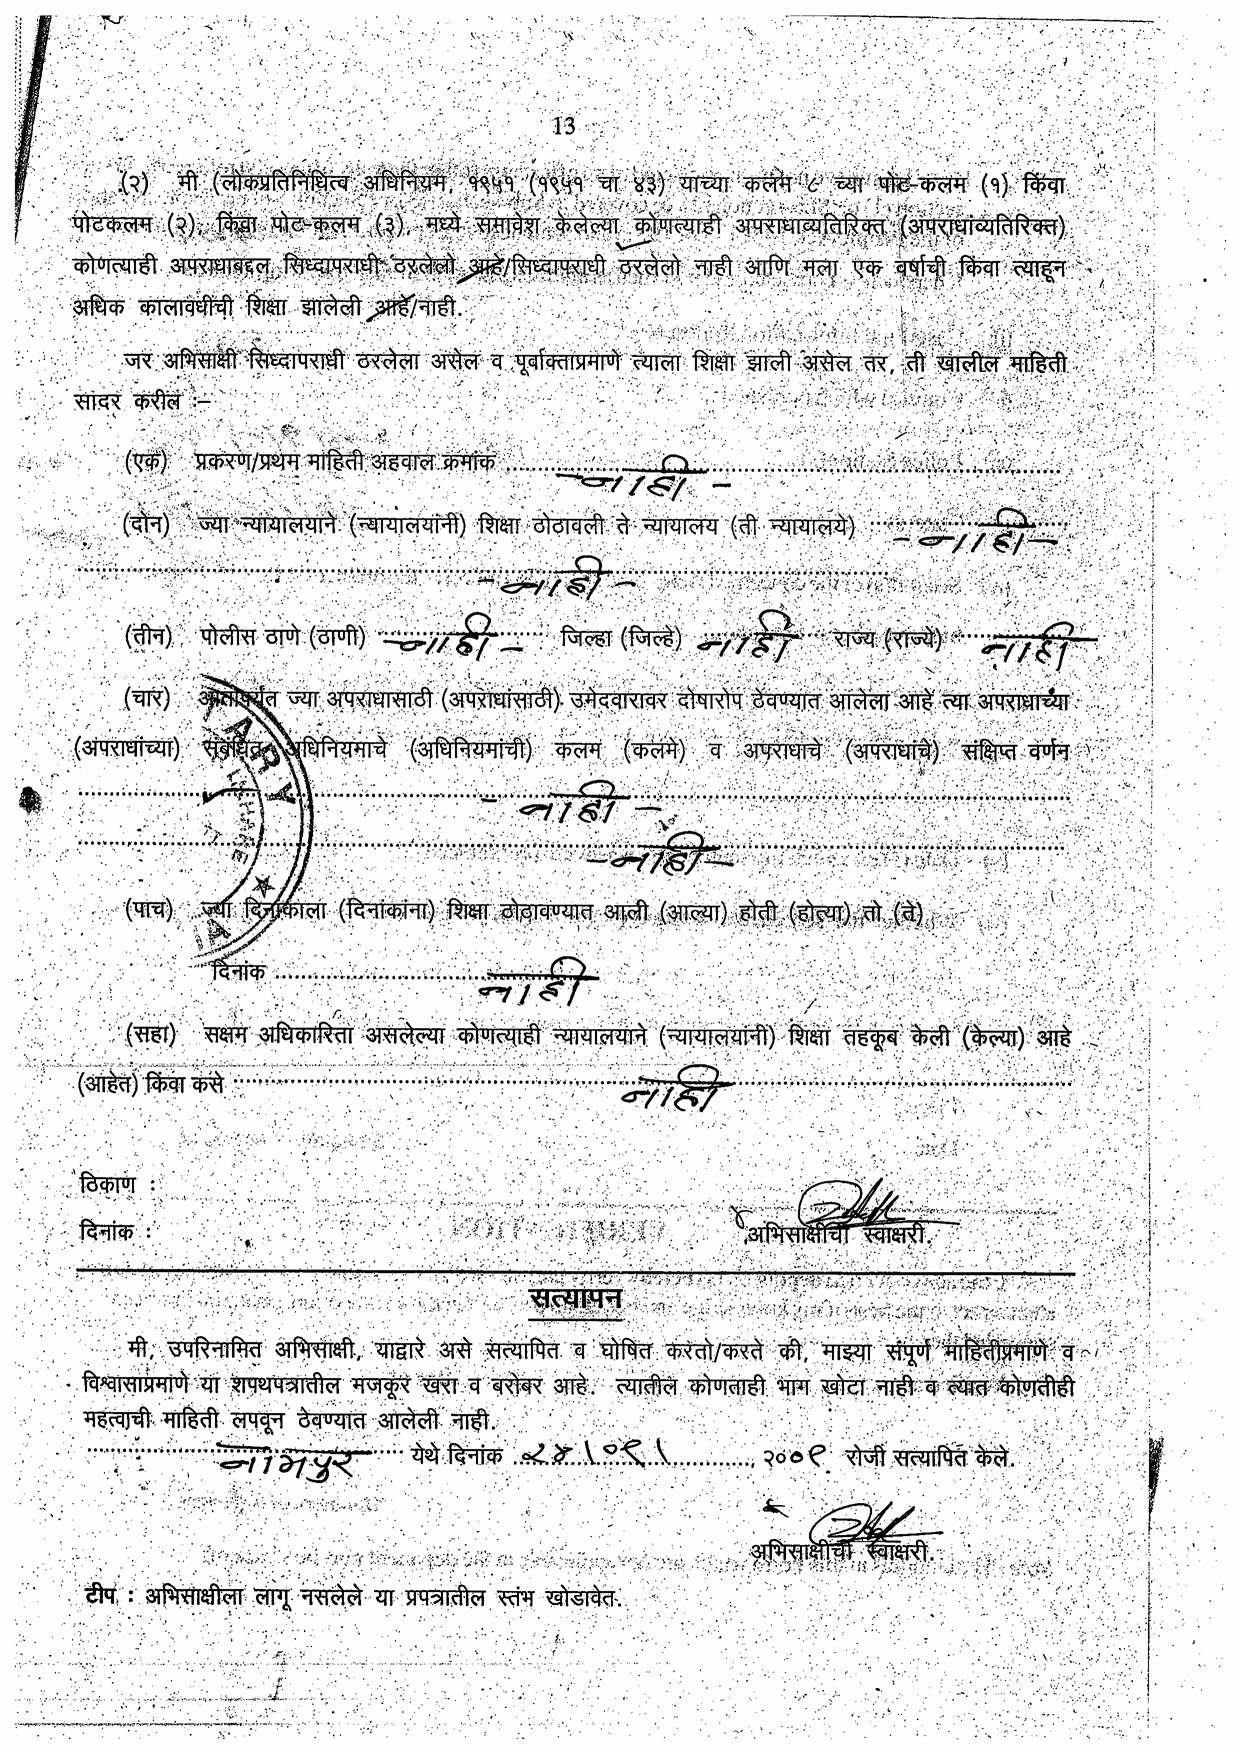 13
(२) मी (लोकप्रतिनिधित्व अधिनियम, १९५१ (१९५१ चा ४३) याच्या कलम ८ च्या पोट-कलम (१) किंवा
पोटकलम (२), किंवा पोट-कलम (३), मध्ये समावेश केलेल्या कोणत्याही अपराधाव्यतिरिक्त (अपराधांव्यतिरिक्त)
कोणत्याही अपराधाबद्दल सिध्दापराधी ठरलेलो आहे/सिध्दापराधी ठरलेलो नाही आणि मला एक वर्षाची किंवा त्याहून
अधिक कालावधीची शिक्षा झालेली आहे/नाही.
जर अभिसाक्षी सिध्दापराधी ठरलेला असेल व पूर्वोक्ताप्रमाणे त्याला शिक्षा झाली असेल तर, ती खालील माहिती
सादर करील :–
(एक) प्रकरण/प्रथम माहिती अहवाल क्रमांक - नाही -
(दोन) ज्या न्यायालयाने (न्यायालयांनी) शिक्षा ठोठावली ते न्यायालय (ती न्यायालये) - नाही -
- नाही -
(तीन) पोलीस ठाणे (ठाणी) - नाही - जिल्हा (जिल्हे) नाही राज्य (राज्ये) नाही
(चार) आतापर्यंत ज्या अपराधासाठी (अपराधांसाठी) उमेदवारावर दोषारोप ठेवण्यात आलेला आहे त्या अपराधाच्या
(अपराधांच्या) संबंधित अधिनियमाचे (अधिनियमांची) कलम (कलमे) व अपराधाचे (अपराधांचे) संक्षिप्त वर्णन
- नाही -
- नाही -
(पाच) ज्या दिनांकाला (दिनांकांना) शिक्षा ठोठावण्यात आली (आल्या) होती (होत्या) तो (ते)
दिनांक नाही
(सहा) सक्षम अधिकारिता असलेल्या कोणत्याही न्यायालयाने (न्यायालयांनी) शिक्षा तहकूब केली (केल्या) आहे
(आहेत) किंवा कसे नाही
ठिकाण :
दिनांक :
अभिसाक्षीची स्वाक्षरी.
सत्यापन
मी, उपरिनामित अभिसाक्षी, याद्वारे असे सत्यापित व घोषित करतो/करते की, माझ्या संपूर्ण माहितीप्रमाणे व
विश्वासाप्रमाणे या शपथपत्रातील मजकूर खरा व बरोबर आहे. त्यातील कोणताही भाग खोटा नाही व त्यात कोणतीही
महत्वाची माहिती लपवून ठेवण्यात आलेली नाही.
नागपुर येथे दिनांक २४/०९/, २००९ रोजी सत्यापित केले.
अभिसाक्षीची स्वाक्षरी.
टीप : अभिसाक्षीला लागू नसलेले या प्रपत्रातील स्तंभ खोडावेत.